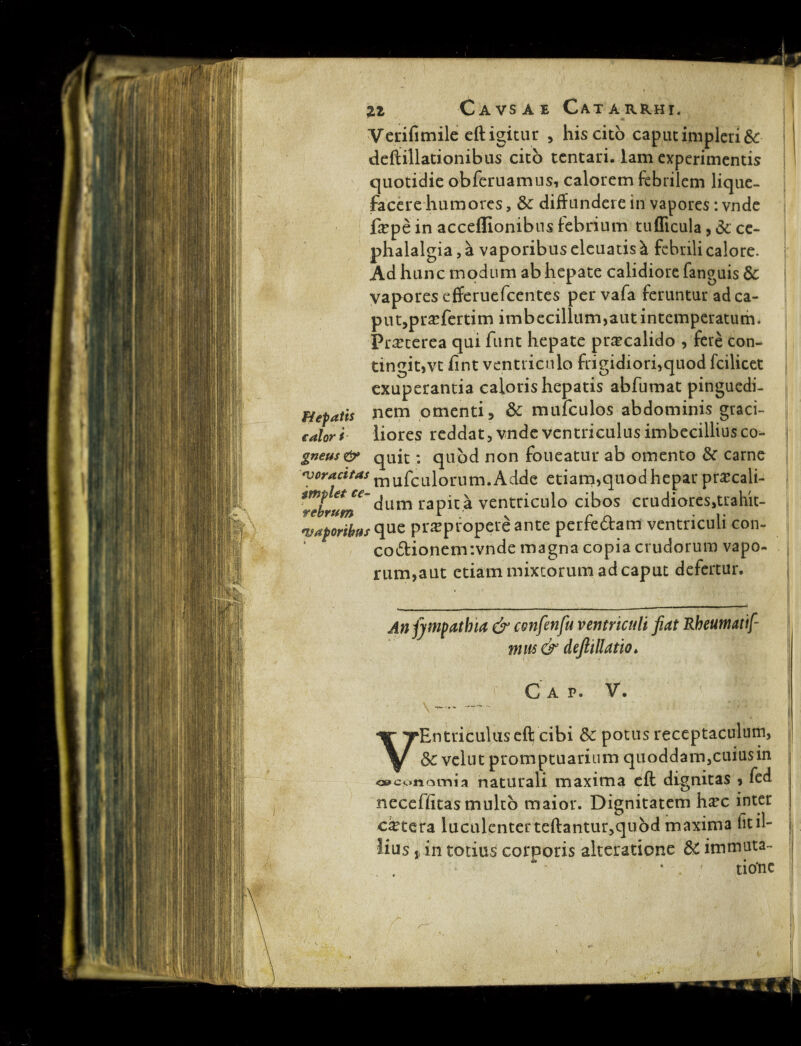 22 CAVSAE CATARRHI.
Verisimile est igitur , his citò caput impleri &
destillationibus citò tentari. Iam experimentis
quotidie obseruamus, calorem febrilem lique-
facere humores, & diffundere in vapores : vnde
sæpè in accessionibus febrium tussicula , & ce-
phalalgia , à vaporibus eleuatis à febrili calore.
Ad hunc modum ab hepate calidiore sanguis &
vapores efferuescentes per vasa feruntur ad ca-
put,præsertim imbecillum,aut intemperatum.
Præterea qui sunt hepate præcalido , ferè con-
tingit,vt sint ventriculo frigidiori,quod scilicet
exuperantia caloris hepatis absumat pinguedi-
nem omenti, & musculos abdominis graci-
liores reddat, vnde ventriculus imbecillius co-
quit : quòd non foueatur ab omento & carne
musculorum. Adde etiam,quod hepar præcali-
dum rapit à ventriculo cibos crudiores,trahit-
que præproperè ante perfectam ventriculi con-
coctionem:vnde magna copia crudorum vapo-
rum,aut etiam mixtorum ad caput defertur.
Hepatis
calor i
gneus &
voracitas
implet ce-
rebrum
vaporibus
An sympathia & consensu ventriculi fiat Rheumatis-
mus & destillatio.
CAP. V.
VEntriculus est cibi & potus receptaculum,
& velut promptuarium quoddam,cuius in
œconomia naturali maxima est dignitas , sed
necessitas multò maior. Dignitatem hæc inter
cætera luculenter testantur,quòd maxima sit il-
lius , in totius corporis alteratione & immuta-
tione